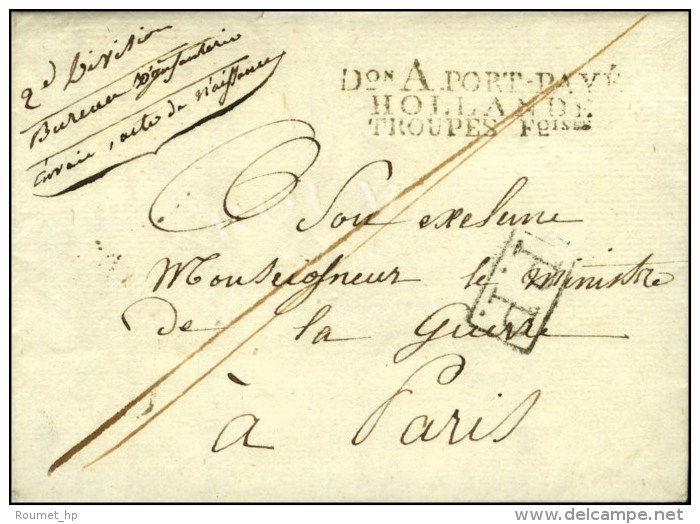 2e Division
Bureau d'infanterie
Envoie, acte de Naissance
Don A PORT-PAYÉ
HOLLANDE
TROUPES Fçises
A Son exelune
Monseigneur le Ministre
de la Guerre
à Paris
Roumet_hp
delcampe.net